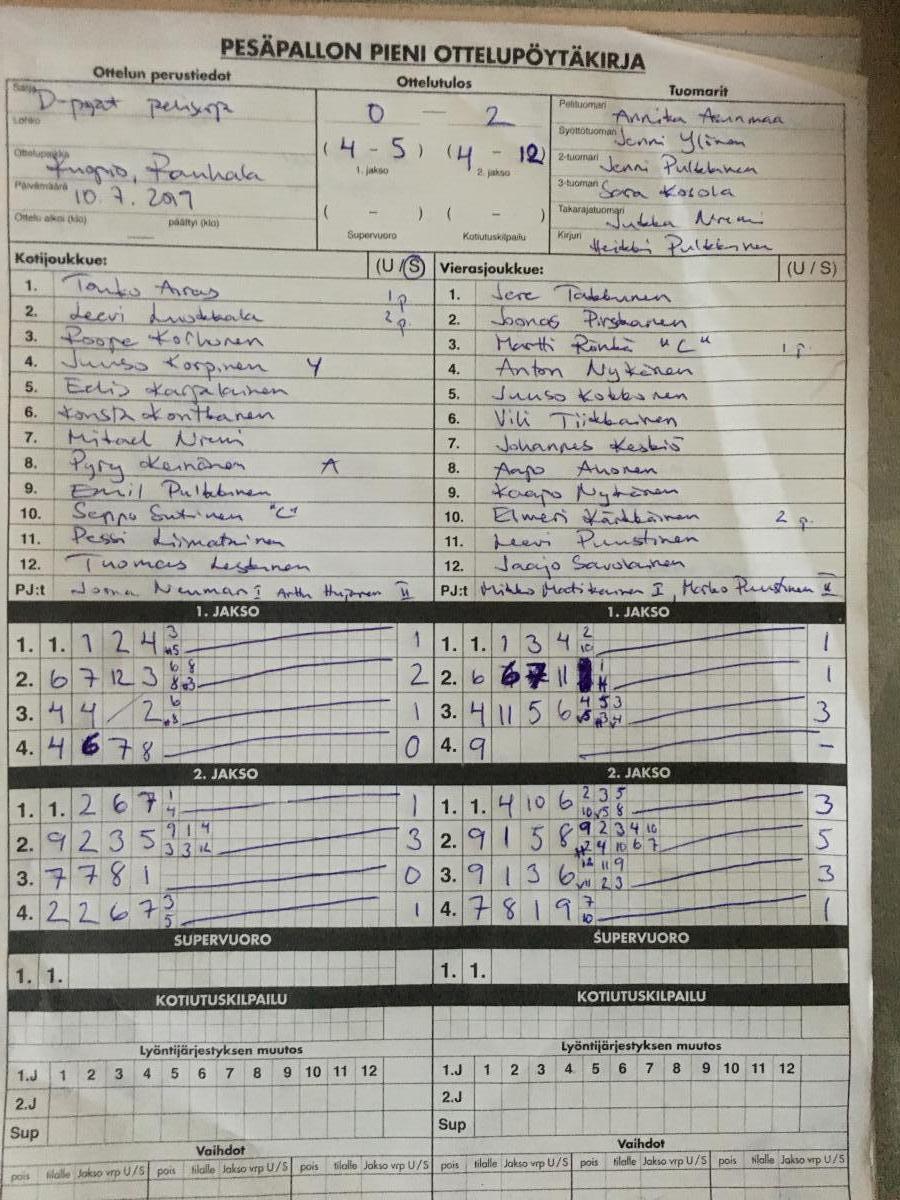 PESÄPALLON PIENI OTTELUPÖYTÄKIRJA
Ottelun perustiedot Ottelutulos Tuomarit
Sarja D-pojat
Lohko
0 - 2
(4 - 5) (4 - 12)
1. jakso 2. jakso
Ottelupaikka Rauhala
Päivämäärä 10.7.2019
Ottelu alkoi (klo) päättyi (klo)
( - ) ( - )
Supervuoro Kotiutuskilpailu
Pelituomari Annika Asunmaa
Syöttötuomari Jenni Ylönen
2-tuomari Jenni Pulkkinen
3-tuomari Sara Kosola
Takarajatuomari Jukka Niemi
Kirjuri Heikki Pulkkinen
Kotijoukkue: (U/S)
1. Touko 1p
2. Leevi Luukkala 2p.
3. Roope Korhonen
4. Juuso Korpinen Y
5. Eelis Karjalainen
6. Konsta Konttanen
7. Mikael Niemi
8. Pyry Keinänen A
9. Emil Pulkkinen
10. Seppo Sutinen "C"
11. Pessi Liimatainen
12. Tuomas Leskinen
PJ:t Jorma Neuman I II
Vierasjoukkue: (U/S)
1. Jere Takkunen
2. Joonas Pirskanen
3. Martti Rönkä "C" 1p
4. Anton Nykänen
5. Juuso Kokkonen
6. Vili Tiikkainen
7. Johannes Keskiö
8. Aapo Ahonen
9. Kaapo Nykänen
10. Elmeri Kärkkäinen 2p.
11. Leevi Puustinen
12. Jaajo Savolainen
PJ:t Mikko Matikainen I, Marko Puustinen II
1. JAKSO
1. 1. 1 2 4 3 5 1
2. 6 7 12 3 6 8 8 3 2
3. 4 4 / 2 6 8 1
4. 4 6 7 8 0
1. JAKSO
1. 1. 1 3 4 2 10 1
2. 6 6 7 11 1
3. 4 11 5 6 4 5 3 3
4. 9 -
2. JAKSO
1. 1. 2 6 7 1 4 1
2. 9 2 3 5 9 1 4 3 3 12 3
3. 7 7 8 1 0
4. 2 2 6 7 3 5 1
2. JAKSO
1. 1. 4 10 6 2 3 5 10 5 8 3
2. 9 1 5 8 9 2 3 4 10 2 4 10 6 7 5
3. 9 1 3 6 12 11 9 11 2 3 3
4. 7 8 1 9 7 10 1
SUPERVUORO
1. 1.
SUPERVUORO
1. 1.
KOTIUTUSKILPAILU
KOTIUTUSKILPAILU
Lyöntijärjestyksen muutos
1.J 1 2 3 4 5 6 7 8 9 10 11 12
2.J
Sup
Lyöntijärjestyksen muutos
1.J 1 2 3 4 5 6 7 8 9 10 11 12
2.J
Sup
Vaihdot
pois tilalle Jakso vrp U/S pois tilalle Jakso vrp U/S pois tilalle Jakso vrp U/S
Vaihdot
pois tilalle Jakso vrp U/S pois tilalle Jakso vrp U/S pois tilalle Jakso vrp U/S